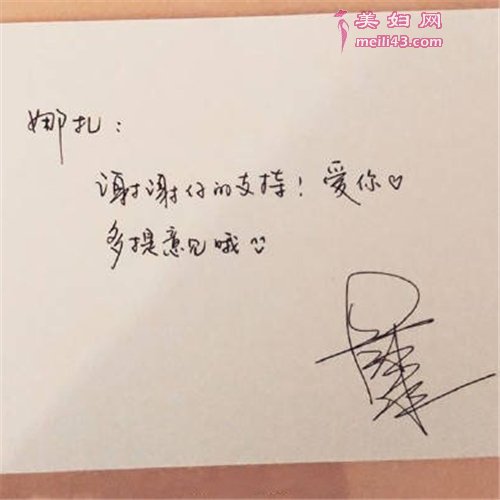 美妇网
meili43.com
娜扎：
谢谢仔的支持！爱你♡
多提意见哦